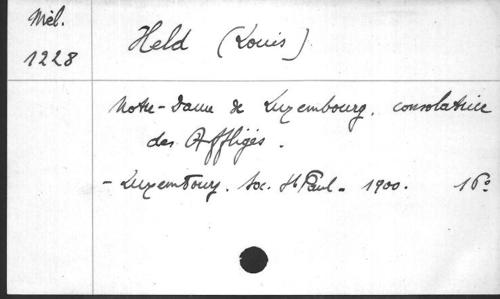 Mél.
1228
Held (Louis)
Notre-Dame de Luxembourg, consolatrice
des Affligés.
- Luxembourg. Soc. St Paul. 1900. 16°